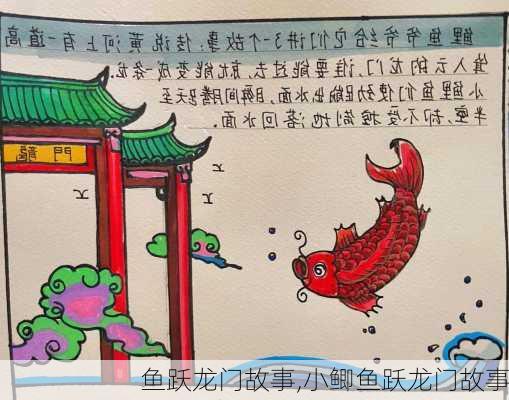 鲤鱼爷爷给它们讲了个故事:传说黄河上有一道高
耸入云的龙门,谁要能过去,就能变成一条龙
小鲤鱼们使劲跃出水面,瞬间腾飞天至
半空,却不受控制地落回水面。
龍門
鱼跃龙门故事,小鲫鱼跃龙门故事